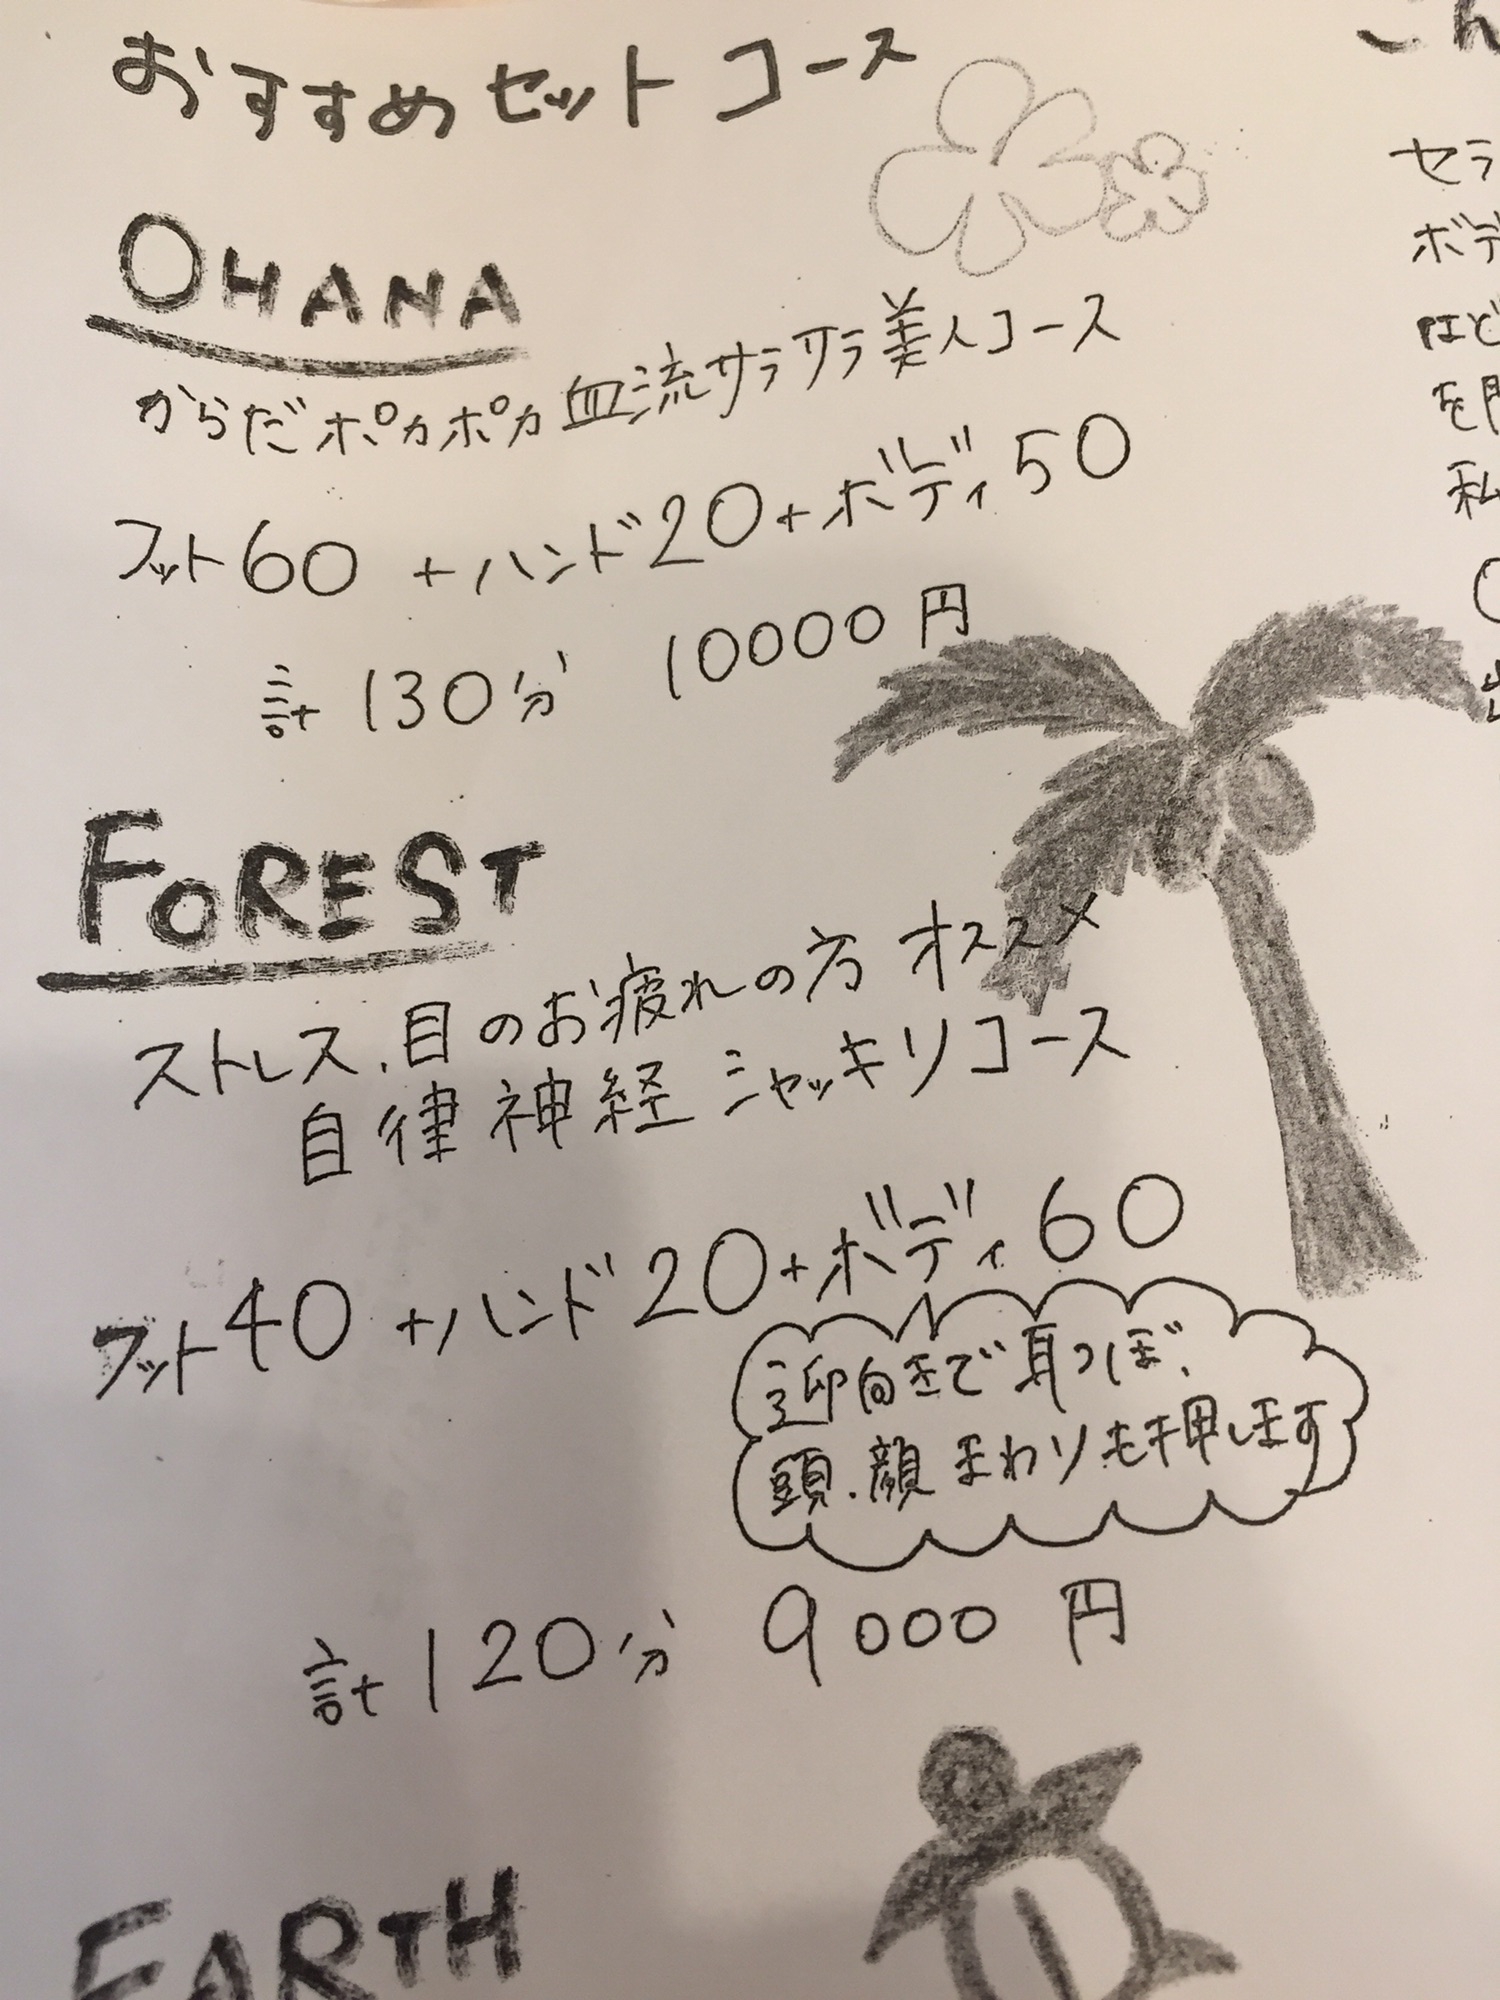 おすすめセットコース
OHANA
からだポカポカ血流サラサラ美人コース
フット60 +ハンド20+ボディ50
計130分 10000円
FOREST
ストレス、目のお疲れの方オススメ
自律神経シャッキリコース
フット40 +ハンド20+ボディ60
迎向きで耳つぼ、
頭、顔まわりも押します
計120分 9000円
EARTH
セラ
ボデ
ほど
を
私